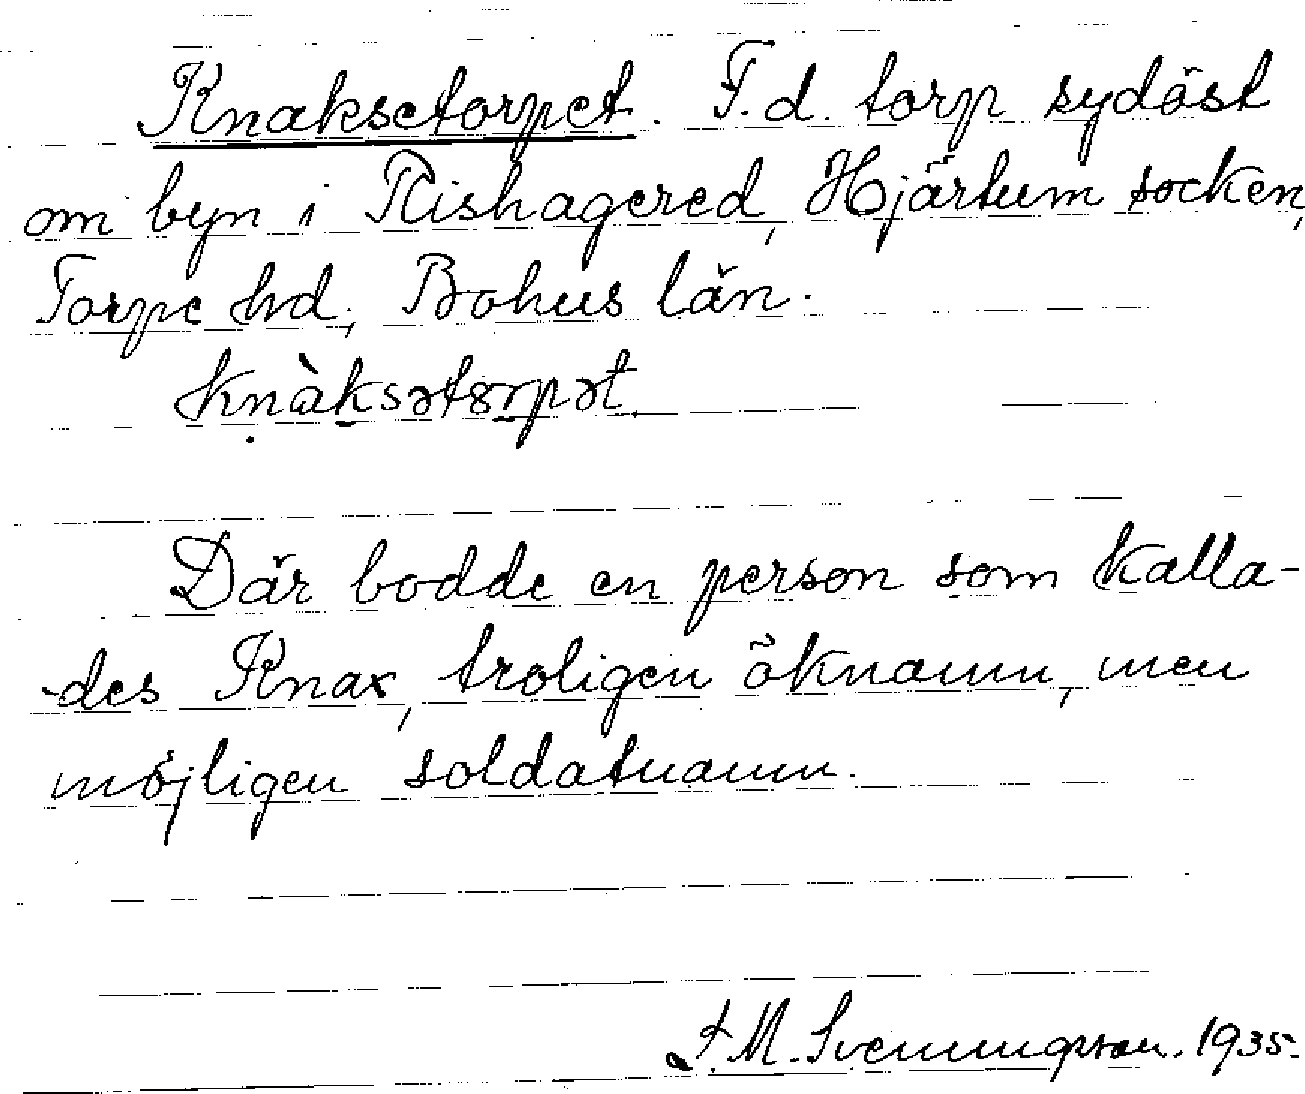 Knaksetorpet. F.d. torp sydöst
om byn i Rishagered, Hjärtum socken,
Torpe hd, Bohus län.
knàksətorpət.
Där bodde en person som kalla-
-des Knax, troligen öknamn, men
möjligen soldatnamn.
J. M. Svenningsson. 1935.